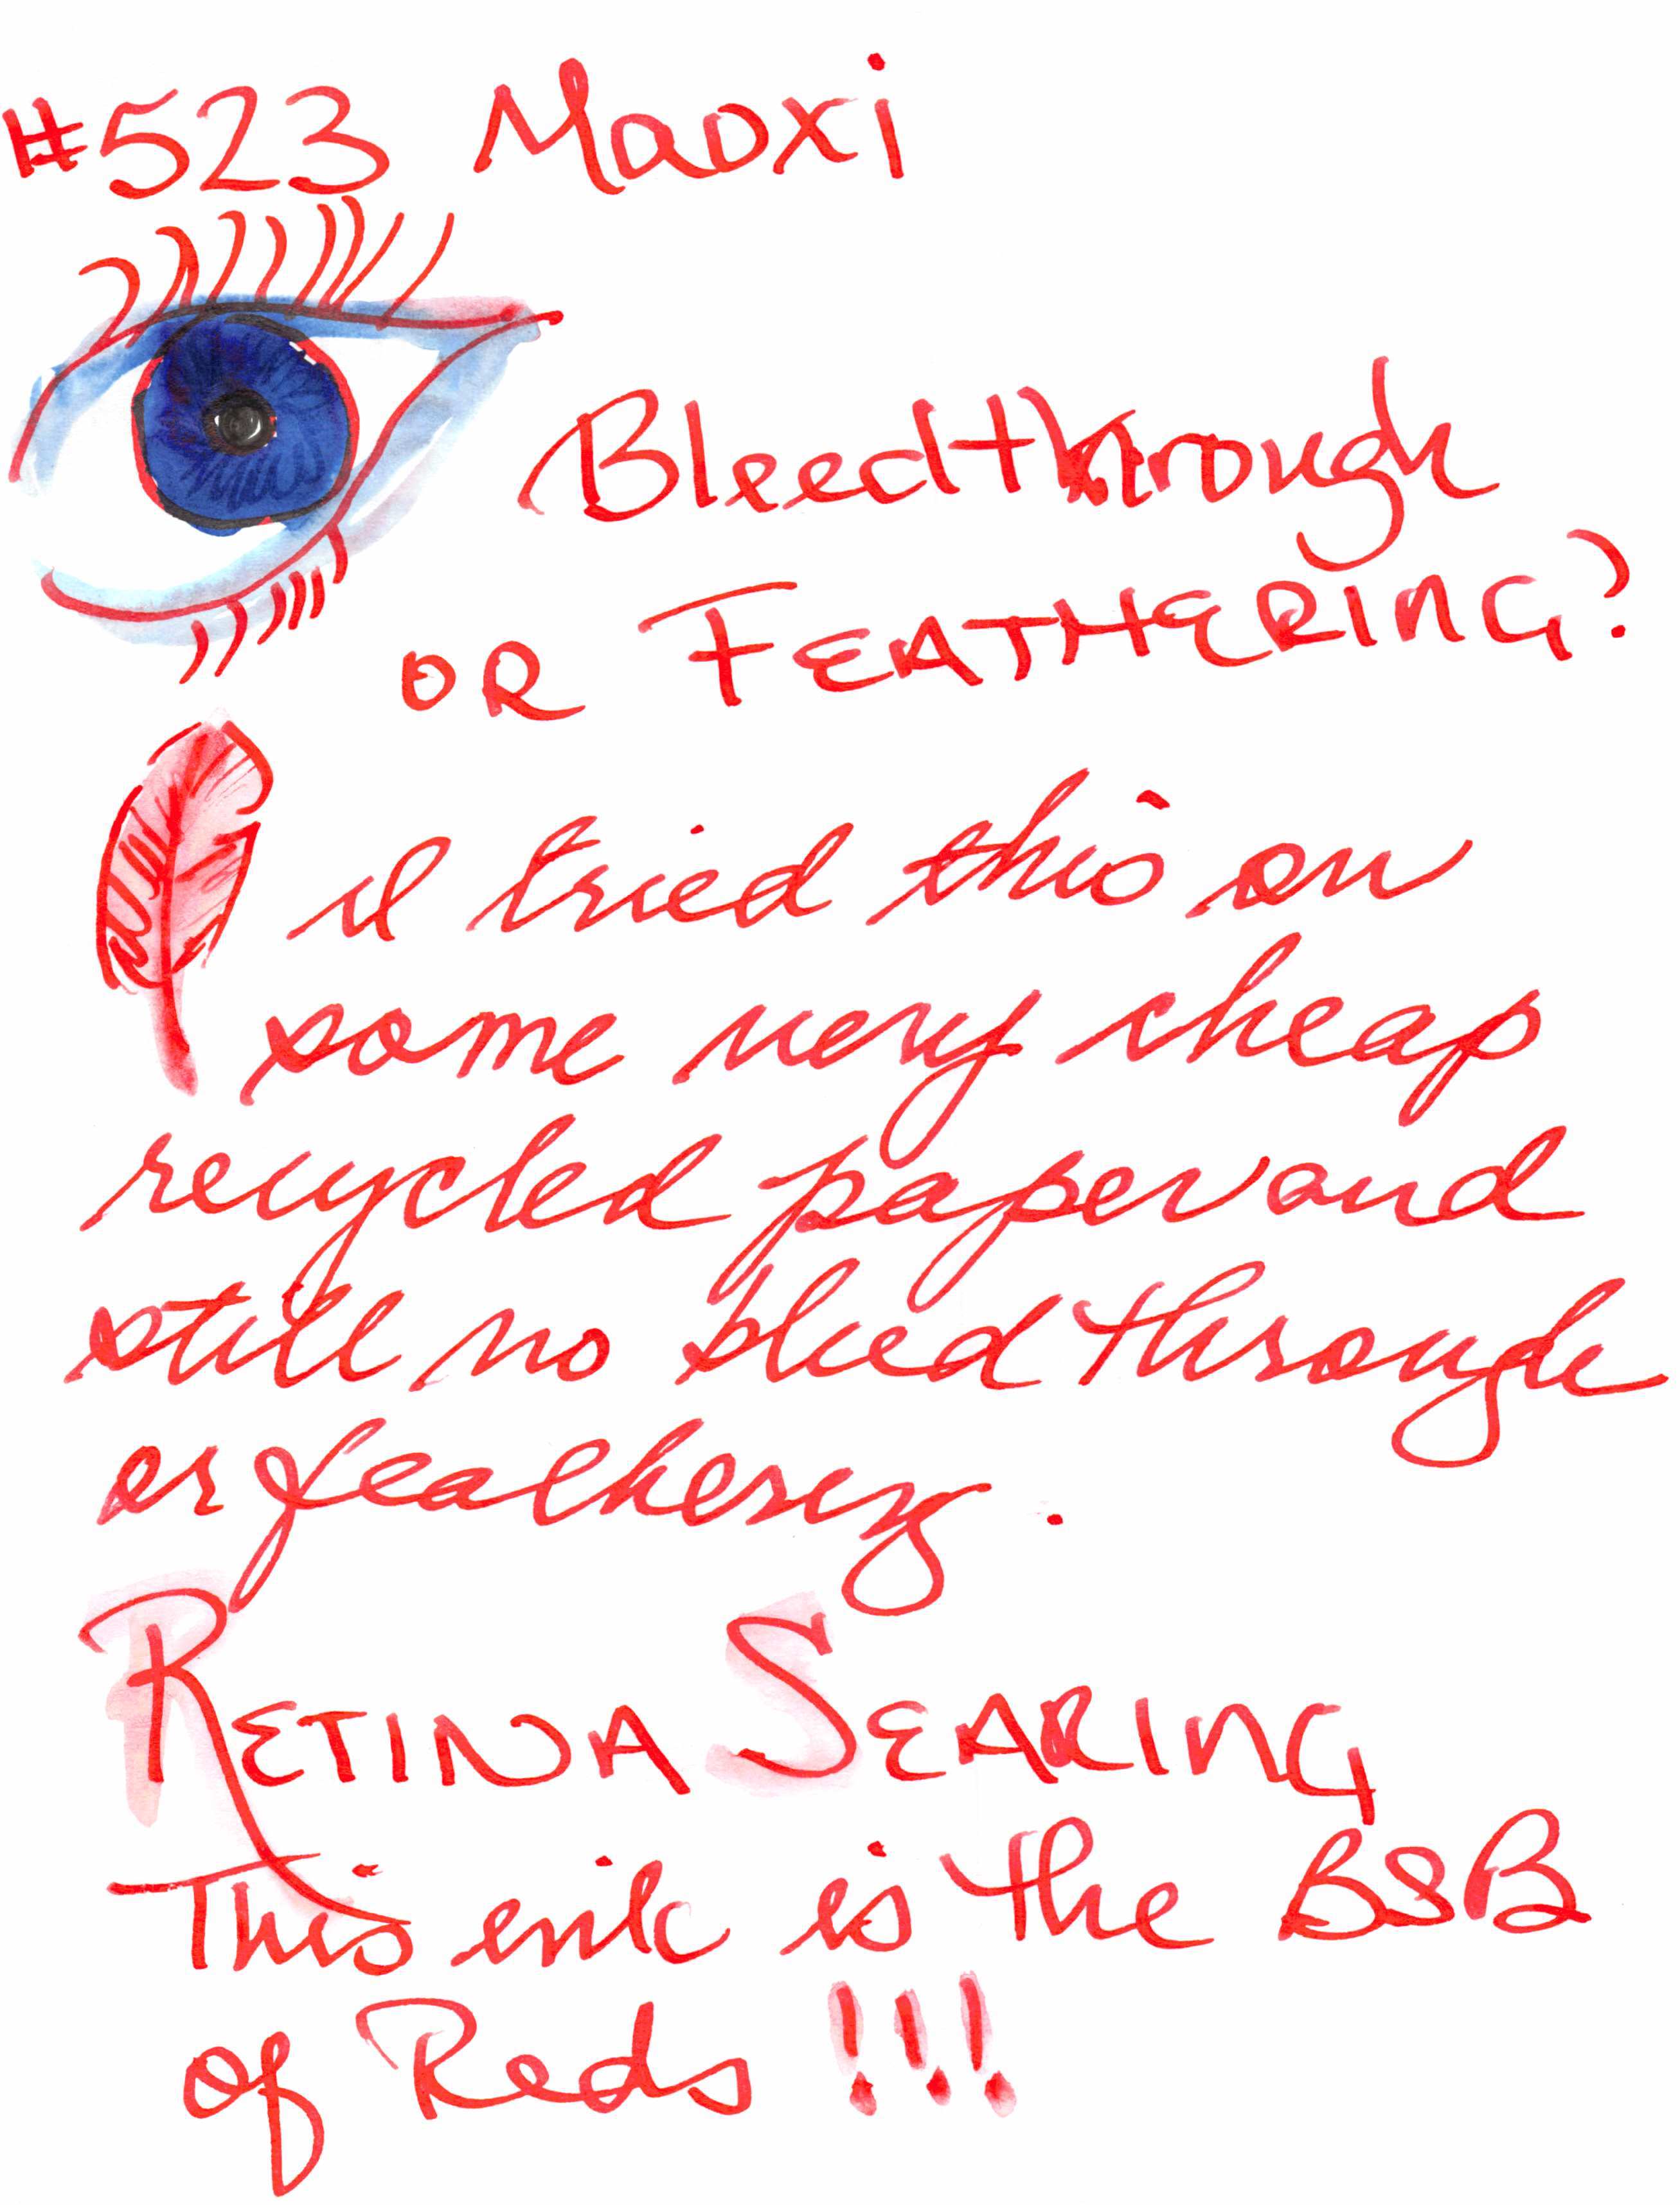 #523 Maoxi
Bleedthrough
OR FEATHERING?
I tried this on
some very cheap
recycled paper and
still no bleed through
or feathering.
RETINA SEARING
This ink is the BSB
of Reds !!!